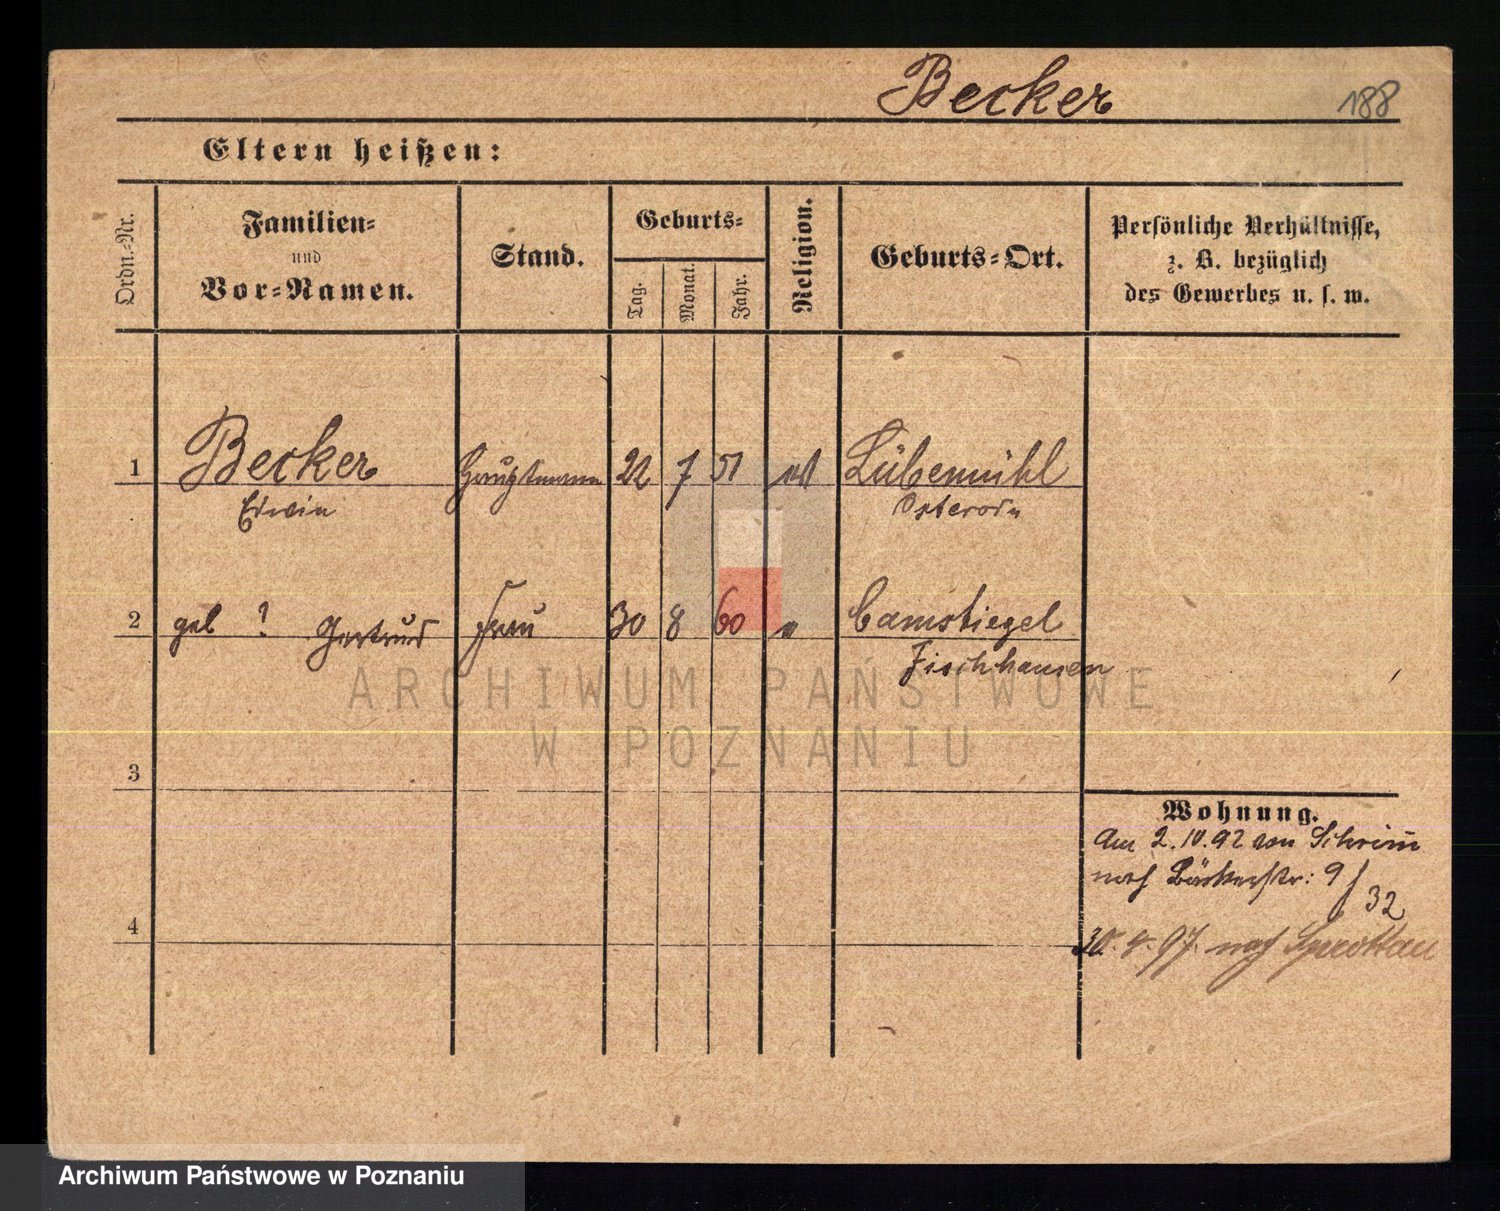 Becker 188
Eltern heißen:
Ordn.-Nr.
Familien-
und
Vor-Namen.
Stand.
Geburts-
Tag.
Monat.
Jahr.
Religion.
Geburts-Ort.
Persönliche Verhältnisse,
z. B. bezüglich
des Gewerbes u. s. w.
1 Becker Hauptmann 22 7 51 Liebemühl
Erwin Osterode
2 geb ? Gertrud Frau 30 8 60 " Camstiegel
Fischhausen
ARCHIWUM PAŃSTWOWE
W POZNANIU
3
Wohnung.
Am 2.10.92 von Schrim
nach Bäckerstr: 9/
32
4
30.4.97. nach Sprottau
Archiwum Państwowe w Poznaniu